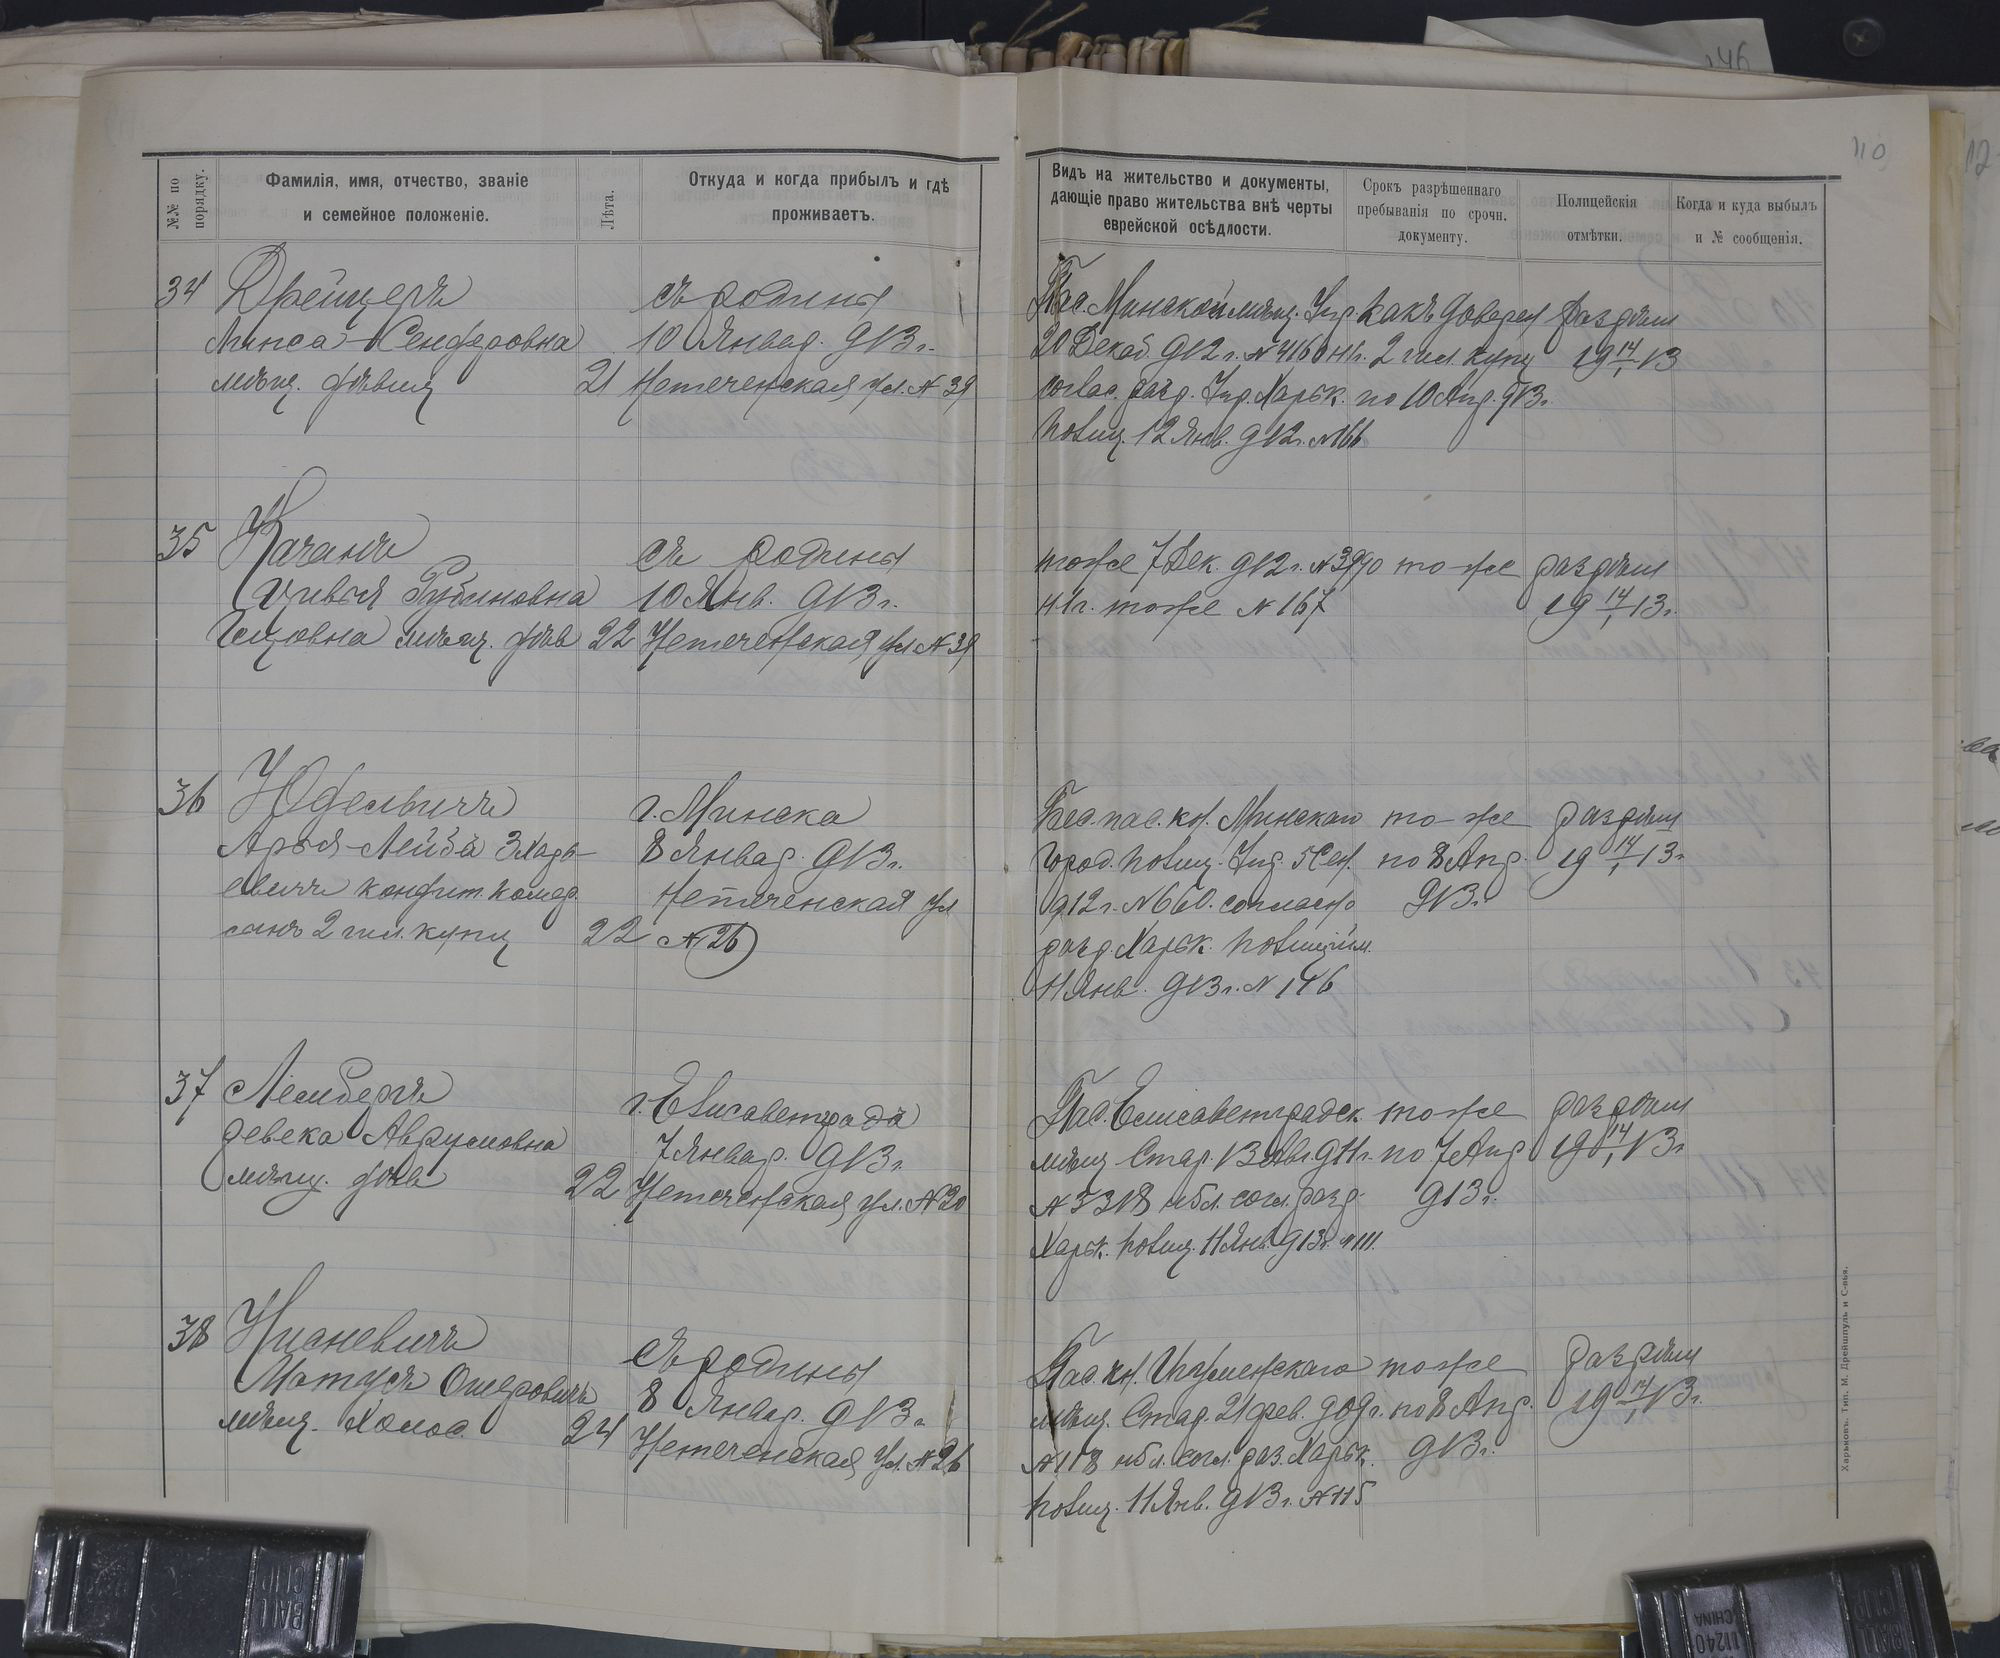 №№ по порядку.
Фамилія, имя, отчество, званіе
и семейное положеніе.
Лѣта.
Откуда и когда прибылъ и гдѣ
проживаетъ.
Видъ на жительство и документы,
дающіе право жительства внѣ черты
еврейской осѣдлости.
Срокъ разрѣшеннаго
пребыванія по срочн.
документу.
Полицейскія
отмѣтки.
Когда и куда выбылъ
и № сообщенія.
110
34 Дрейцеръ
Сендеровна
мѣщ. дѣвиц 21
съ родины
10 Январ. 913 г.
Нетеченская ул. № 39
Пас. Минской мѣщ. Упр.
20 Декаб. 912 г. № 4160
соглас. разр. Упр. Харьк.
полиц. 12 Янв. 912 г. № 166
какъ доверен
2 гил. купц
по 10 Апр. 913 г.
разрѣш
19 14/I 13
35 Качанъ
Рубиновна
мѣщ. дѣв 22
съ родины
10 Янв. 913 г.
Нетеченская ул № 39
тоже 7 Дек. 912 г. № 3990
тоже № 167
тоже
разрѣш
19 14/I 13 г.
36 Юделевичъ
Арья-Лейба
2 гил. купц 22
г. Минска
8 Январ. 913 г.
Нетеченская ул
№ 26
Бес. пас. кн. Минскаго
Город. полиц. Упр. 5 Сен.
912 г. № 660. согласно
разр. Харьк. полиции
11 Янв. 913 г. № 146
тоже
по 8 Апр.
913 г.
разрѣш
19 14/I 13 г.
37 Лемберг
Ревека Аврумовна
мѣщ. дѣв 22
г. Елисаветграда
7 Январ. 913 г.
Нетеченская ул. № 20
Пас. Елисаветградск.
мѣщ Стар. 13 Авг. 911 г.
№ 3318 согл. разр.
Харьк. полиц. 11 Янв. 913 г. № 111.
тоже
по 7 Апр
913 г.
разрѣш
19 14/I 13 г.
38 Нисневичъ
Мотусъ Ошеровичъ
мѣщ. Холос. 24
съ родины
8 Январ. 913 г.
Нетеченская ул. № 26
Пас. кн. Игуменскаго
мѣщ. Стар. 21 фев. 909 г.
№ 118 согл. раз. Харьк.
полиц. 11 Янв. 913 г. № 115
тоже
по 8 Апр.
913 г.
разрѣш
19 14/I 13 г.
Харьковъ. Тип. М. Дрейшпуль и С-вья.